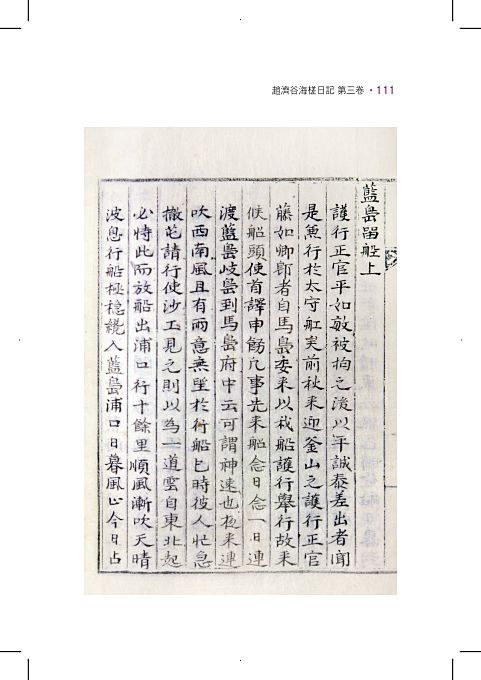 趙濟谷海槎日記 第三卷 · 111
藍島留船上
護行正官平如敏被拘之後以平誠泰差出者聞
是魚行於太守舡矣前秋来迎釜山之護行正官
藤如卿者自馬島委来以我船護行擧行故来
候船頭使首譯申飭凡事先来舡念日念一日連
渡藍島歧島到馬島府中云可謂神速也夜来連
吹西南風且有雨意無望於行船巳時彼人忙急
撤芚請行使沙工見之則以為一道雲自東北起
必恃此而放船出浦口行十餘里順風漸吹天晴
波息行船極穏纔入藍島浦口日暮風止今日占